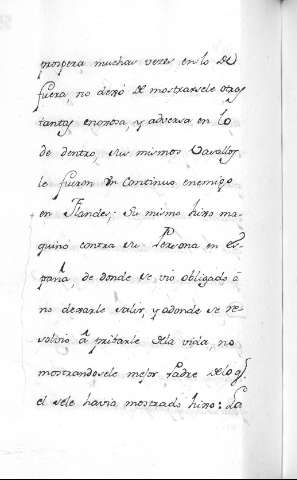 prospera muchas vezes en lo de
fuera, no dexó de mostrarsele otras
tantas enojosa, y adversa en lo
de dentro, sus mismos Vasallos
le fueron un continuo enemigo
en Flandes; Su mismo hixo ma-
quino contra su Persona en es-
paña, de donde se vio obligado á
no dexarle salir, y adonde se re-
solvio á pribarle de la vida, no
mostrandosele mejor Padre de lo q.
el sele havia mostrado hixo: La